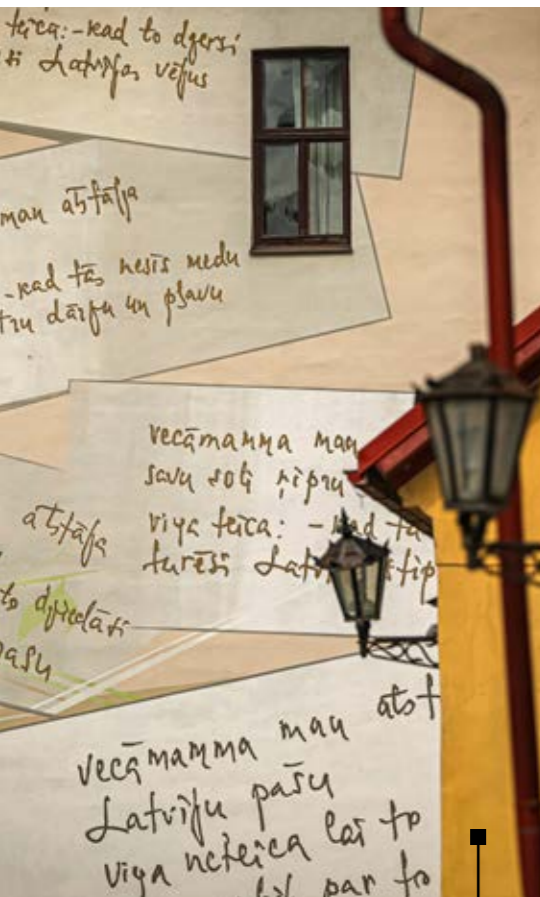 teica: - kad to dzersi
si Latvijas vējus
man atstāja
- kad tas nesīs medu
tru dārzu un pļavu
vecāmamma man
savu soli ņipru
viņa teica: - kad ta
turēsi Latv stip
atstāja
to dziedāti
pašu
vecāmamma man atst
Latviju pašu
viņa neteica lai to
par to